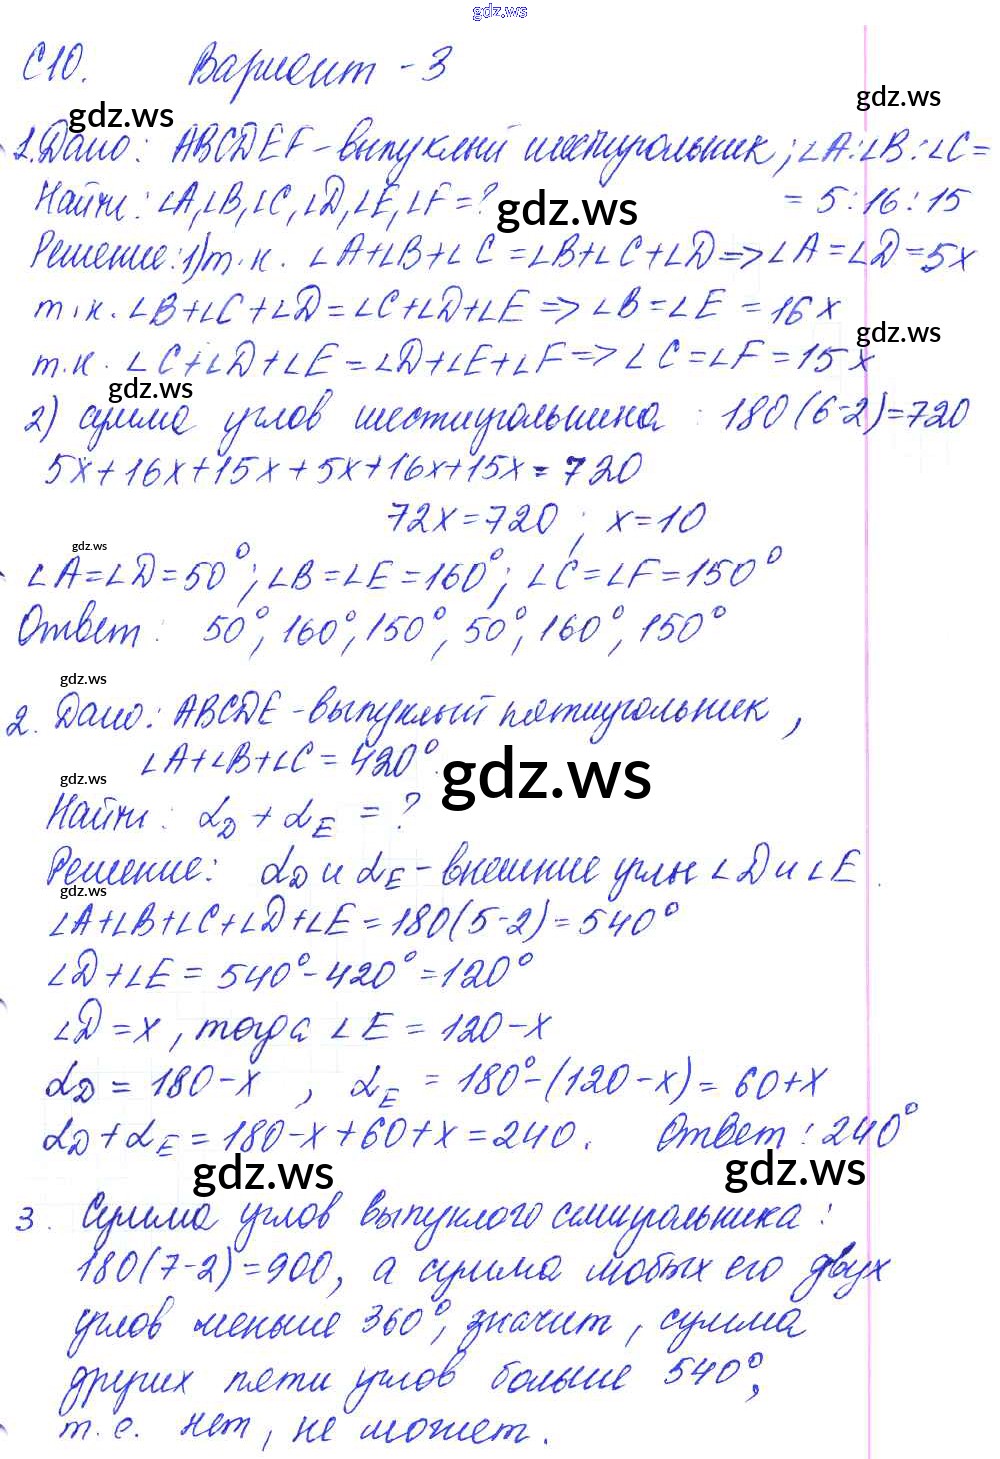 gdz.ws
С10. Вариант - 3
gdz.ws
gdz.ws
1. Дано: ABCDEF - выпуклый шестиугольник; ∠A:∠B:∠C =
Найти: ∠A, ∠B, ∠C, ∠D, ∠E, ∠F = ? = 5:16:15
gdz.ws
Решение: 1) т.к. ∠A+∠B+∠C = ∠B+∠C+∠D => ∠A = ∠D = 5x
т.к. ∠B+∠C+∠D = ∠C+∠D+∠E => ∠B = ∠E = 16x
gdz.ws
т.к. ∠C+∠D+∠E = ∠D+∠E+∠F => ∠C = ∠F = 15x
gdz.ws
2) сумма углов шестиугольника : 180(6-2)=720
5x+16x+15x+5x+16x+15x = 720
72x=720 ; x=10
gdz.ws
∠A=∠D=50°; ∠B=∠E=160°; ∠C=∠F=150°
Ответ: 50°, 160°, 150°, 50°, 160°, 150°
gdz.ws
2. Дано: ABCDE - выпуклый пятиугольник,
∠A+∠B+∠C = 420°.
gdz.ws
gdz.ws
Найти: α_D + α_E = ?
Решение: α_D и α_E - внешние углы ∠D и ∠E.
gdz.ws
∠A+∠B+∠C+∠D+∠E = 180(5-2) = 540°
∠D+∠E = 540°-420° = 120°
∠D = x, тогда ∠E = 120-x
α_D = 180-x , α_E = 180°-(120-x) = 60+x
α_D+α_E = 180-x+60+x = 240. Ответ: 240°
gdz.ws
gdz.ws
3. Сумма углов выпуклого семиугольника:
180(7-2)=900, а сумма любых его двух
углов меньше 360°, значит, сумма
других пяти углов больше 540°,
т.е. нет, не может.